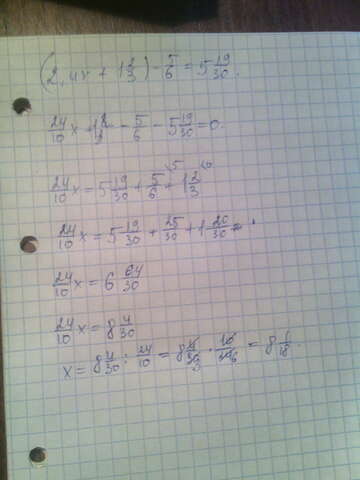 (2,4x + 1 2/3) - 5/6 = 5 19/30.
24/10 x + 1 2/3 - 5/6 - 5 19/30 = 0.
24/10 x = 5 19/30 + 5/6 + 1 2/3
24/10 x = 5 19/30 + 25/30 + 1 20/30 =
24/10 x = 6 64/30
24/10 x = 8 4/30
x = 8 4/30 : 24/10 = 8 4/30 · 10/24 = 8 1/18.